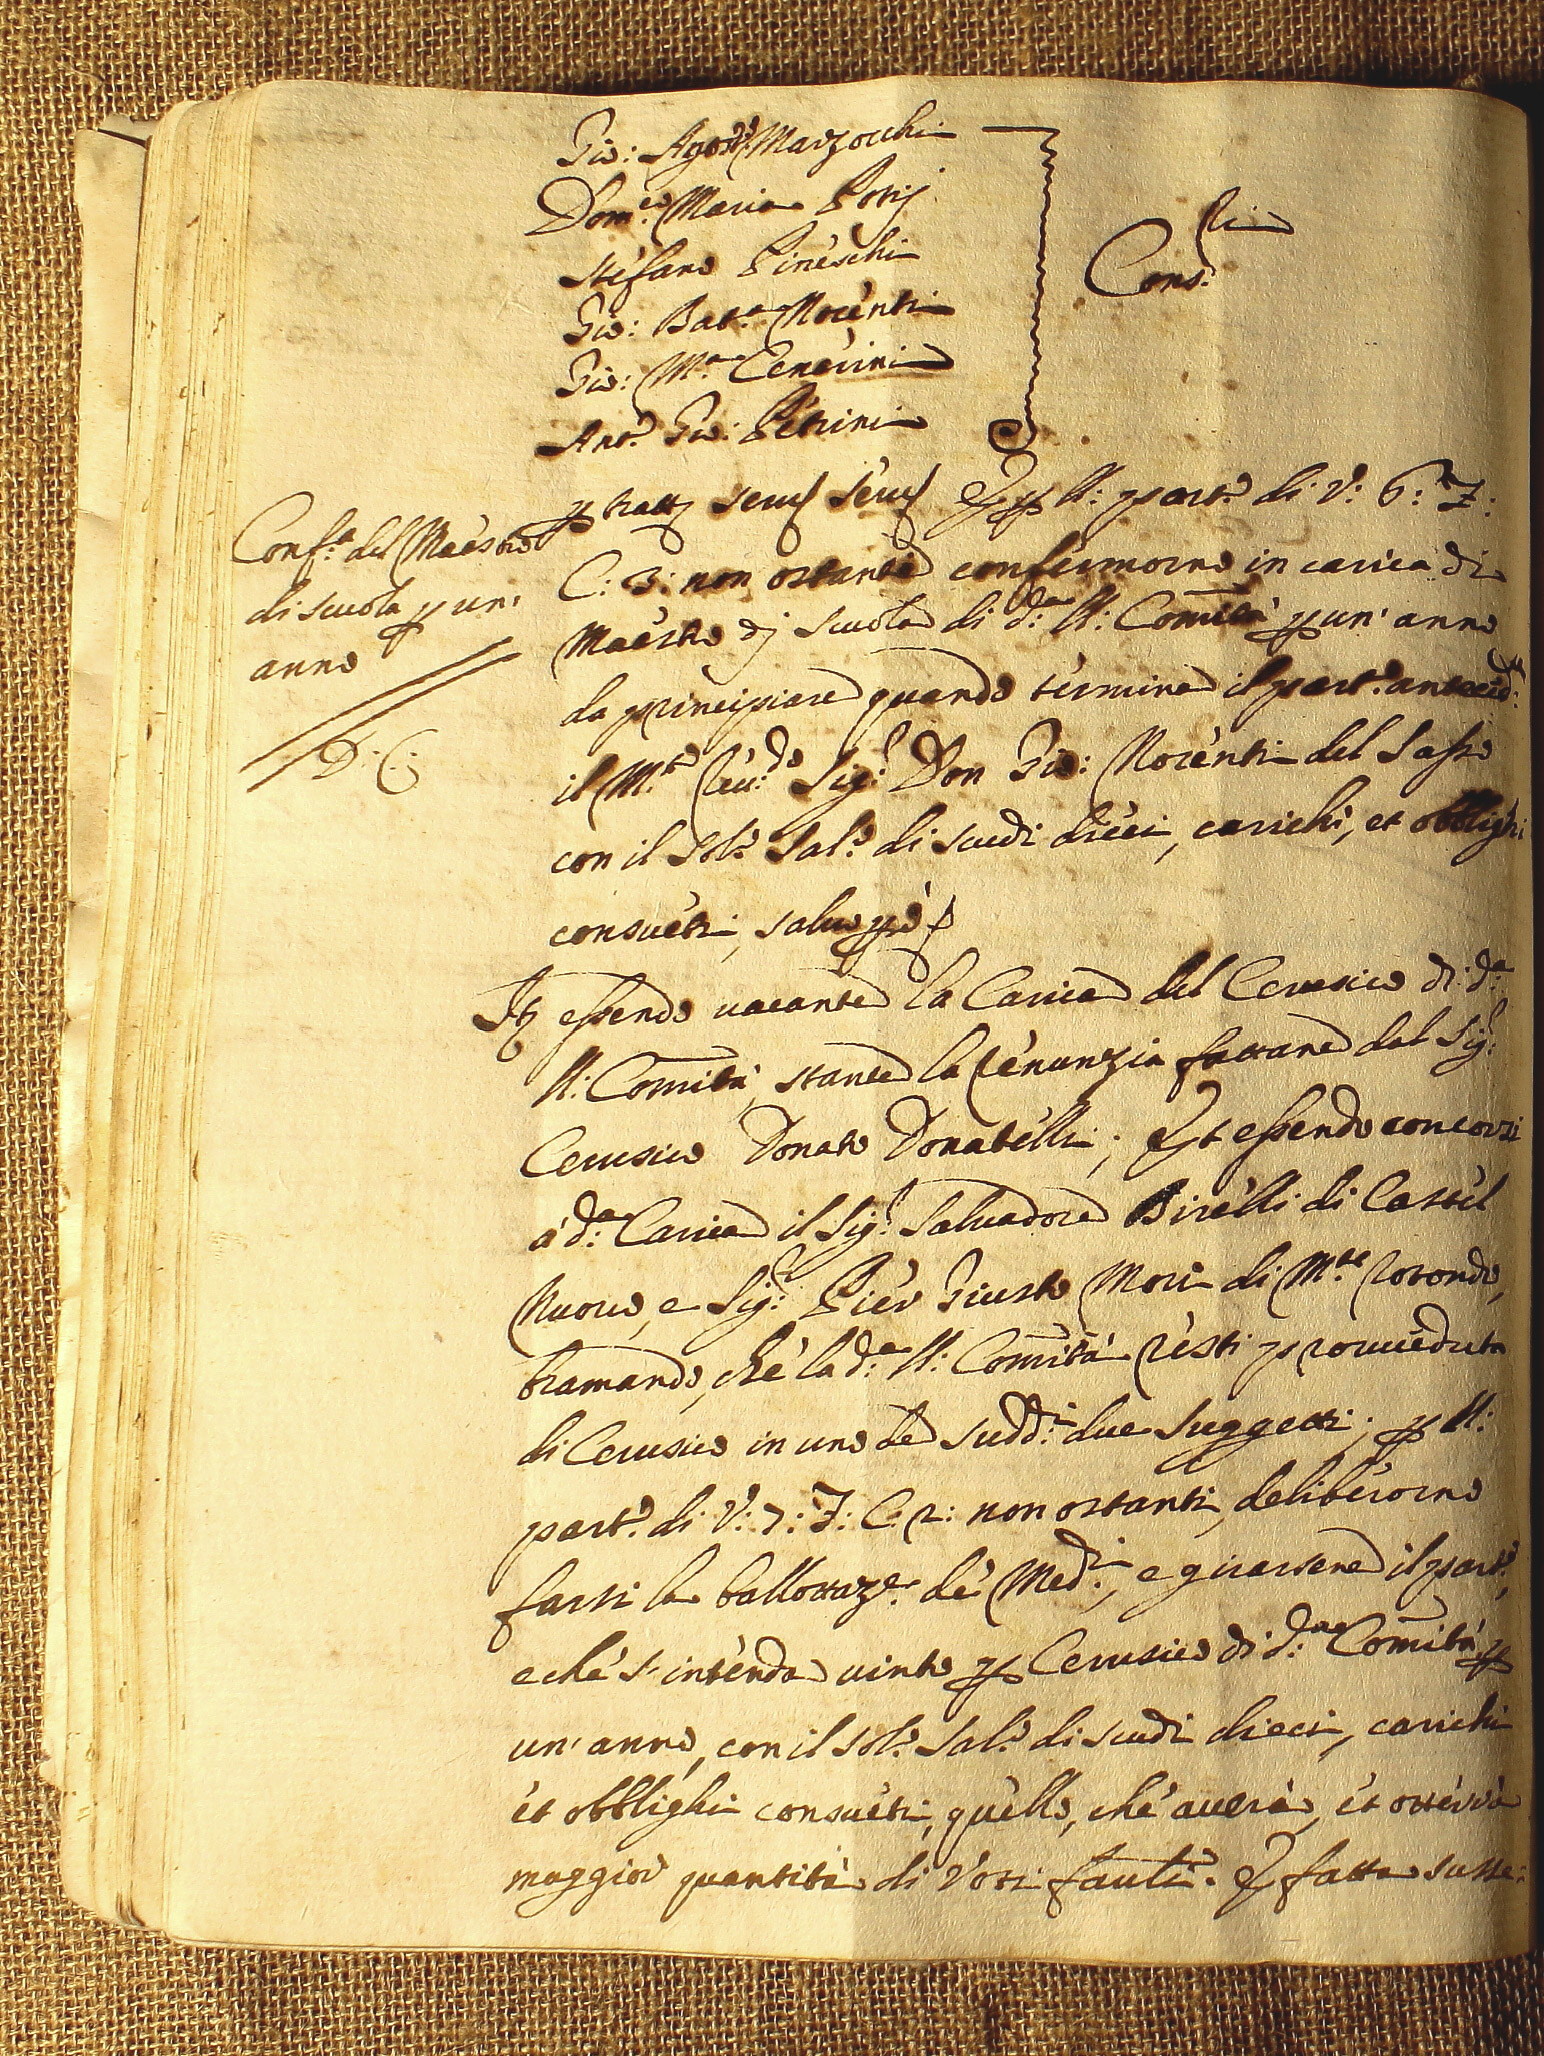 Gio: Agost.o Marzocchi
Dom.co Maria Potij
Stefano Pineschi
Gio: Bat.a Nocenti
Gio: M.a Cenerini
Ant.o Gio: Petrini
Cons.ri
Conf.a del Maestro
di scuola p un'
anno
D: C:
p tratt servatis servandis E p U: part.o di V: 6: F:
C: 3: non ostante confermorno in carica di
Maestro di scuola di d.a U: Comità p un' anno
da principiare quando termina il part.o anteced.te
il M.to Reu.do Sig.r Don Gio: Nocenti del Sasso
con il sol.o sal.o di scudi dieci, carichi, et obblighi
consueti, saluo p è
It essendo uacante la Carica del Cerusico di d.a
U: Comità, stante la renunzia fattane dal Sig.r
Cerusico Donato Donatelli; Et essendo concorsi
à d.a Carica il Sig.r Saluadore Birelli di Castel
Nuouo, e Sig.r Pier Giusto Mori di M.te rotondo,
bramando, che la d.a U: Comità resti proueduta
di Cerusico in uno de sudd.i due suggetti; p U:
part.o di V: 7: F: C: 2: non ostanti, deliberorno
farsi la ballottaz.e de Med.i, e girarsene il part.o,
e che s'intenda uinto p Cerusico di d.a Comità p
un' anno, con il sol.o sal.o di scudi dieci, carichi
et obblighi consueti, quello, che auerà, et otterrà
maggior quantità di Voti fauli. E fatta susse: